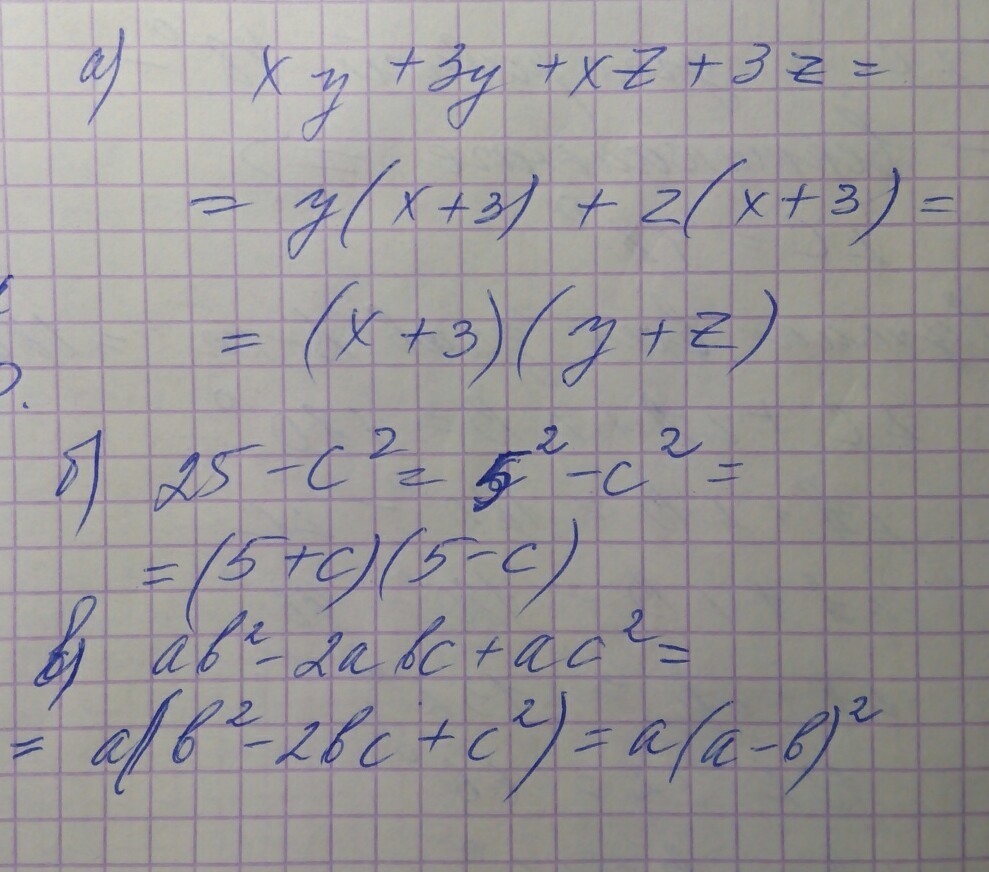 а) xy + 3y + xz + 3z =
= y(x+3) + z(x+3) =
= (x+3)(y+z)
б) 25 - c² = 5² - c² =
= (5+c)(5-c)
в) ab² - 2abc + ac² =
= a(b² - 2bc + c²) = a(a-b)²